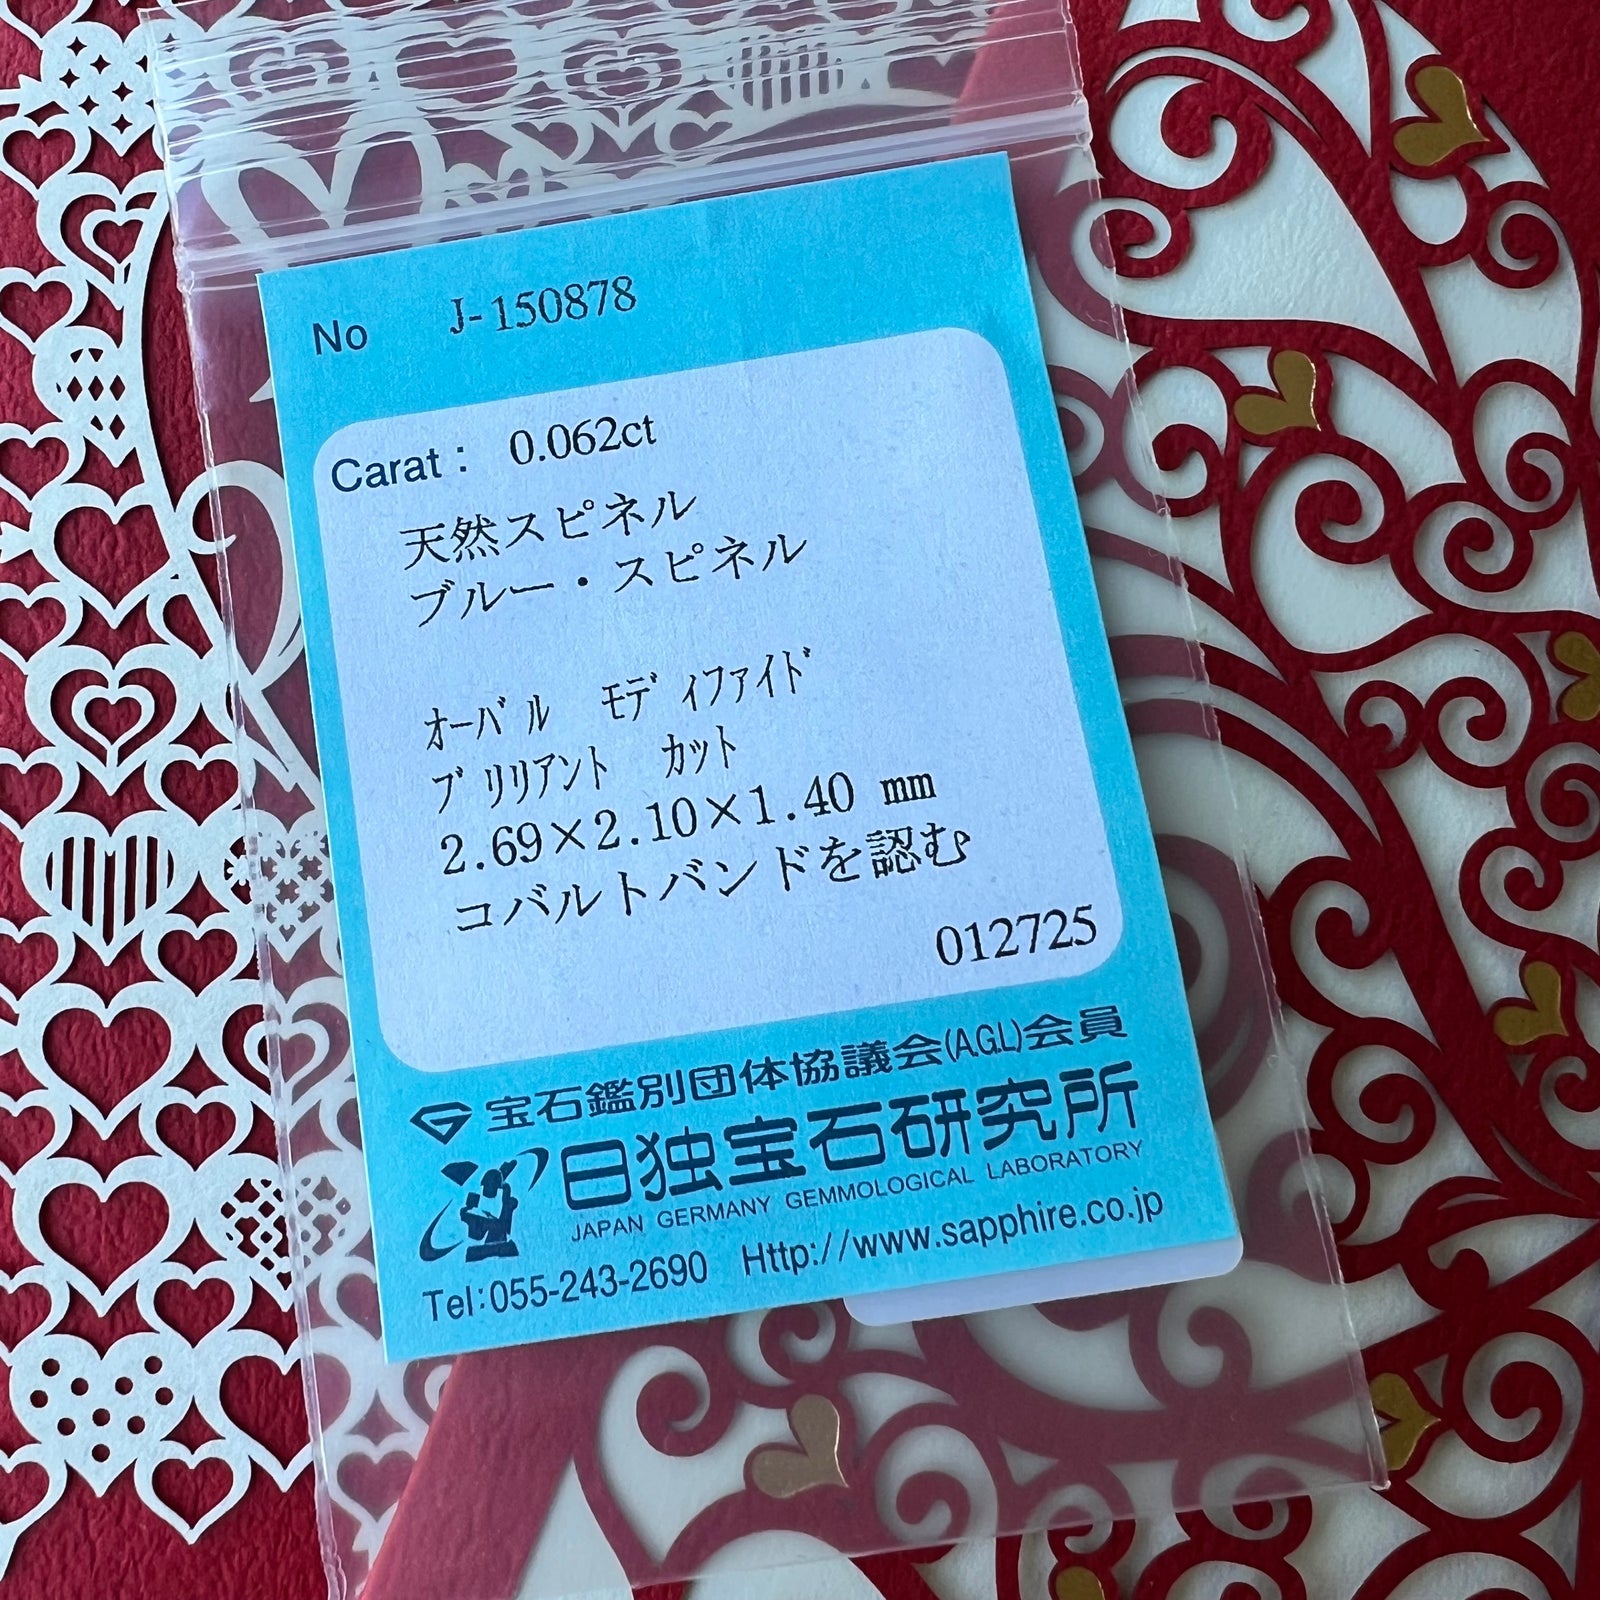 No J-150878
Carat: 0.062ct
天然スピネル
ブルー・スピネル
ｵｰﾊﾞﾙ ﾓﾃﾞｨﾌｧｲﾄﾞ
ﾌﾞﾘﾘｱﾝﾄ ｶｯﾄ
2.69×2.10×1.40 mm
コバルトバンドを認む
012725
宝石鑑別団体協議会(A.G.L)会員
日独宝石研究所
JAPAN GERMANY GEMMOLOGICAL LABORATORY
Tel:055-243-2690 Http://www.sapphire.co.jp